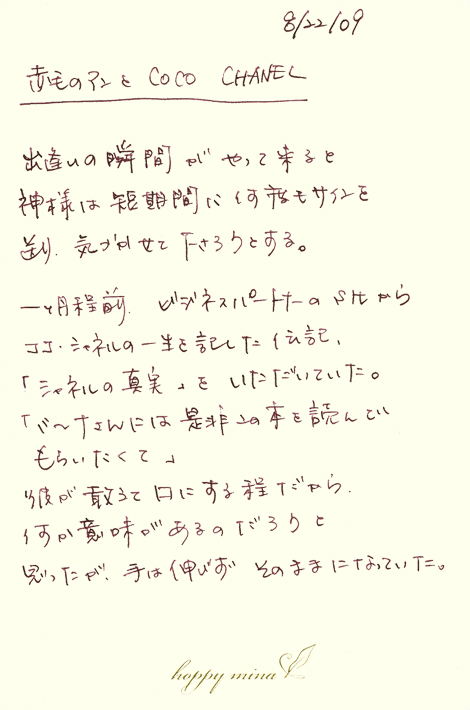 8/22/09
赤毛のアンと COCO CHANEL
出逢いの瞬間がやって来ると
神様は短期間に何度もサインを
送り、気づかせて下さろうとする。
一ヶ月程前、ビジネスパートナーのSHから
ココ・シャネルの一生を記した伝記、
「シャネルの真実」をいただいていた。
「 バ〜ナさんには是非この本を読んで
もらいたくて」
彼が敢えて口にする程だから、
何か意味があるのだろうと
思ったが、手は伸びず そのままになっていた。
happy mina